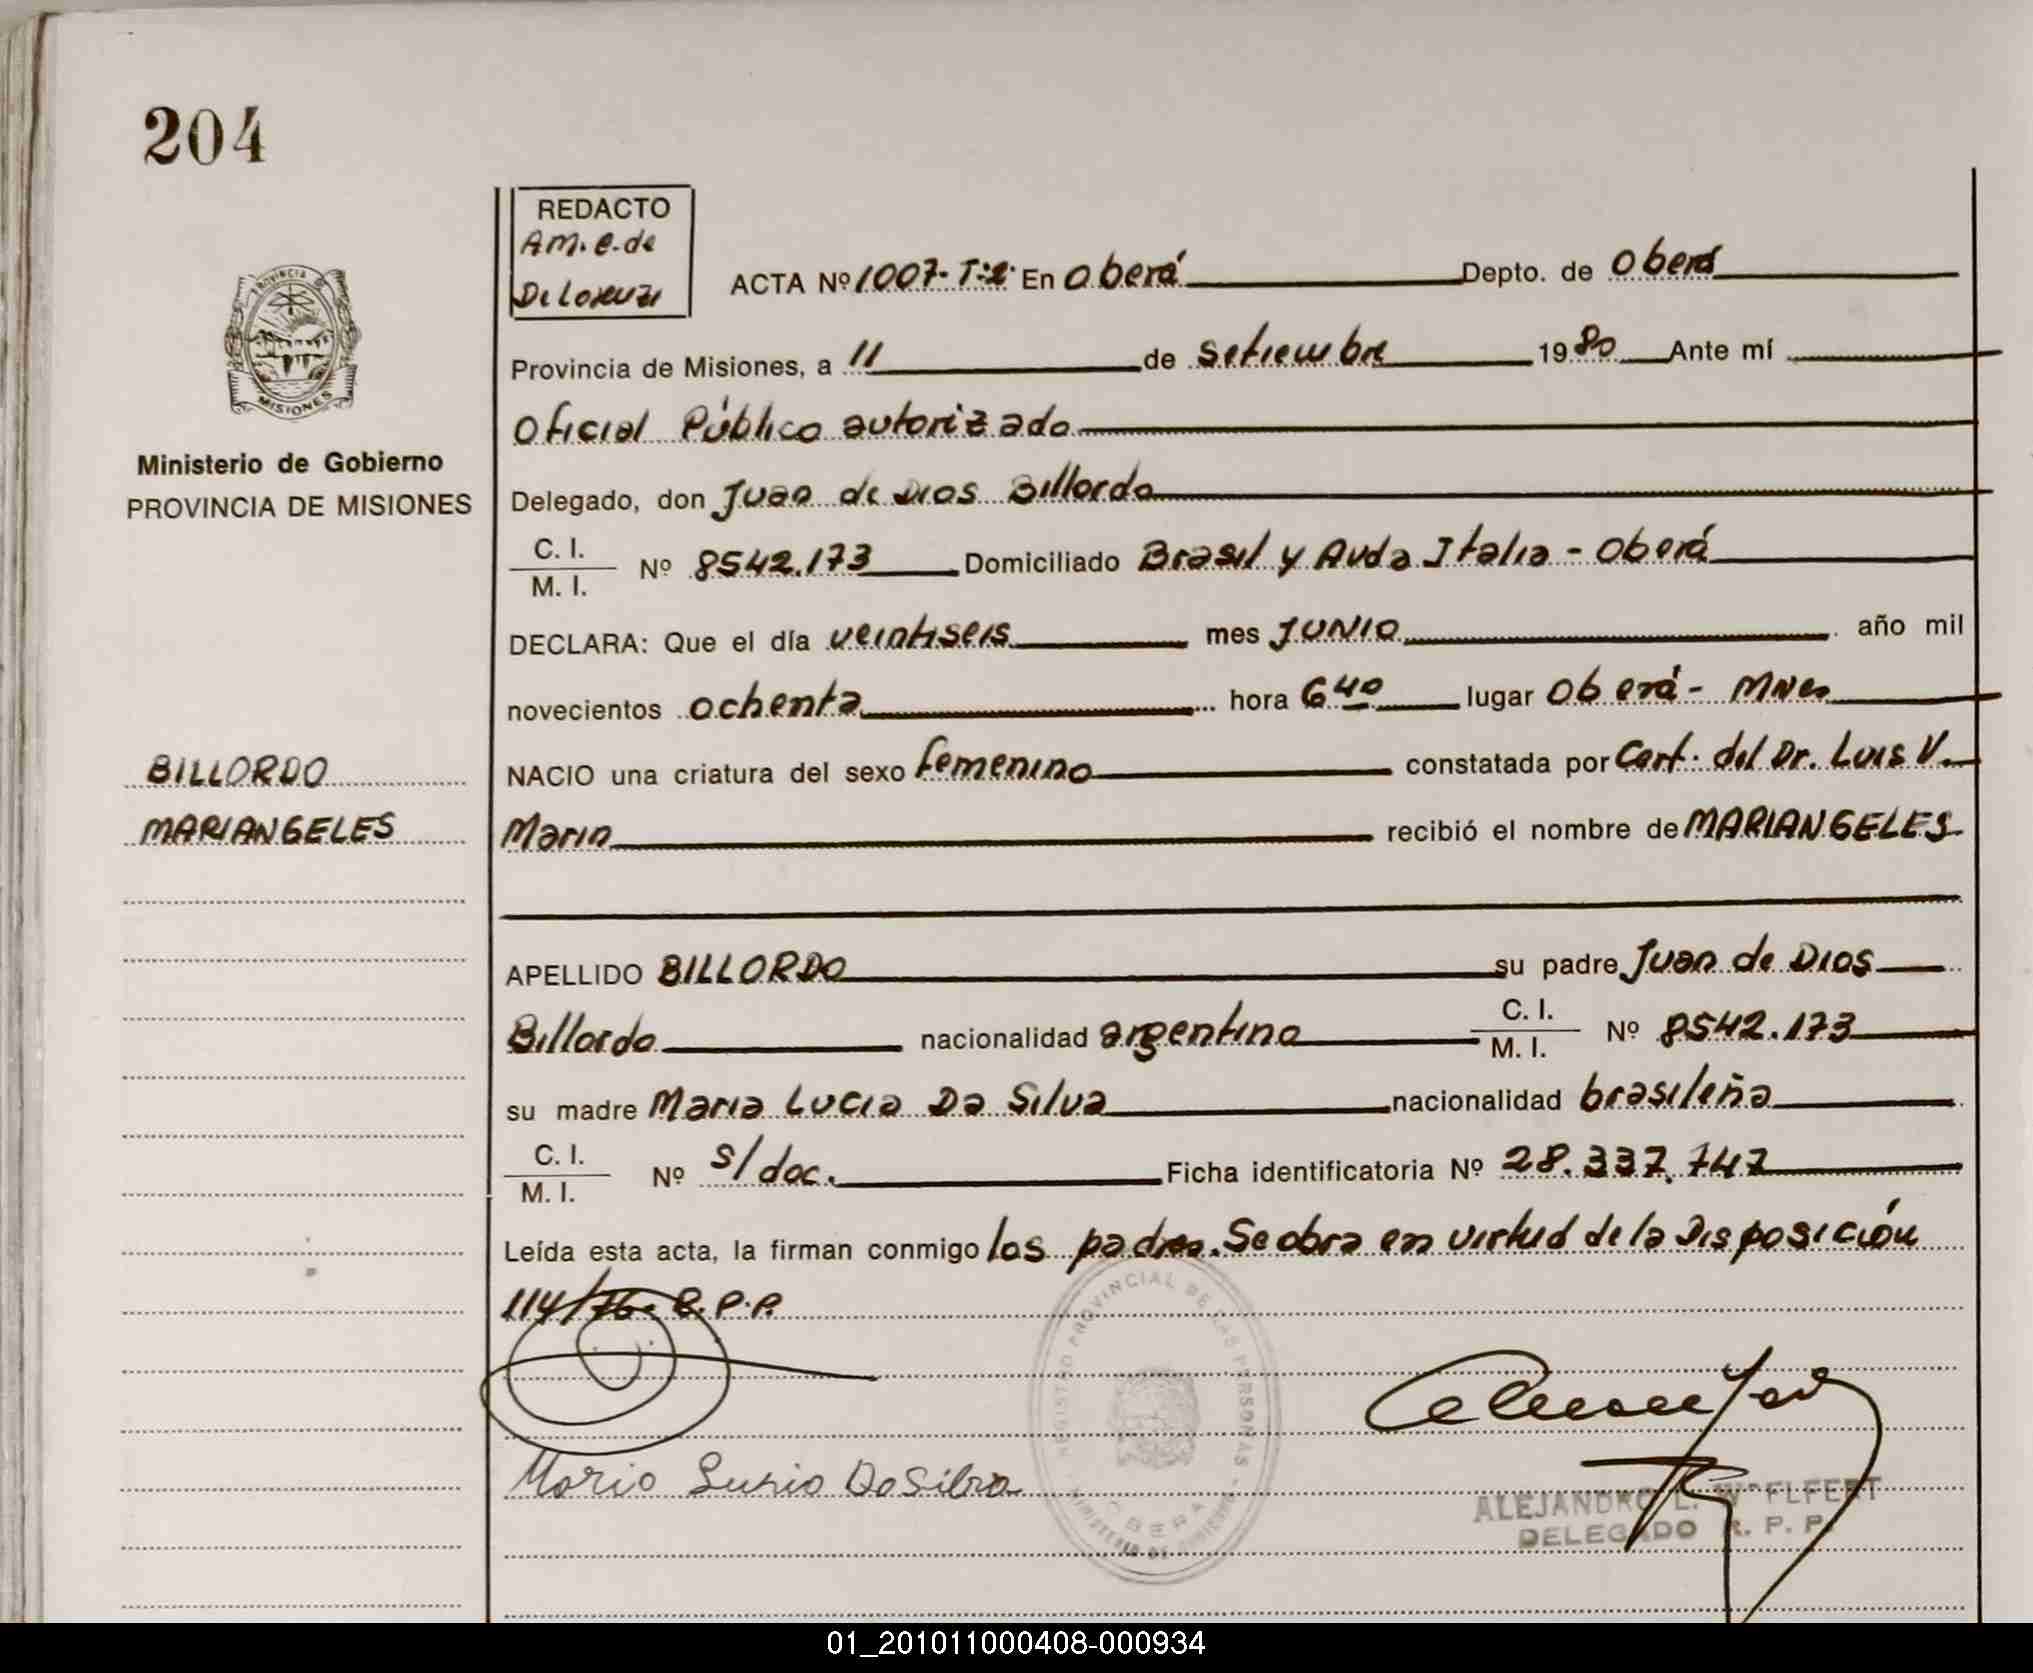 204
REDACTO
A.M. e. de
De Lorenzi
ACTA Nº 1007- T:2º En Oberá Depto. de Oberá
Provincia de Misiones, a 11 de Setiembre 1980 Ante mí
Oficial Público autorizado
PROVINCIA
MISIONES
Ministerio de Gobierno
PROVINCIA DE MISIONES
Delegado, don Juan de Dios Billordo
C. I.
M. I. Nº 8542.173 Domiciliado Brasil y Avda Italia - Oberá
DECLARA: Que el día veintiseis mes JUNIO año mil
novecientos ochenta hora 6 40 lugar Oberá - Mnes
BILLORDO
MARIANGELES
NACIO una criatura del sexo femenino constatada por Cert. del Dr. Luis V.
Marin recibió el nombre de MARIANGELES
APELLIDO BILLORDO su padre Juan de Dios
Billordo nacionalidad argentino C. I. M. I. Nº 8542.173
su madre Maria Lucia Da Silva nacionalidad brasileña
C. I.
M. I. Nº s/doc. Ficha identificatoria Nº 28.337.747
Leída esta acta, la firman conmigo los padres. Se obra en virtud de la Disposición
114/76. R.P.P.
REGISTRO PROVINCIAL DE LAS PERSONAS
OBERA
MINISTERIO DE GOBIERNO
Mario Lusio Da Silva
ALEJANDRO L. WOELFERT
DELEGADO R. P. P.
01_201011000408-000934